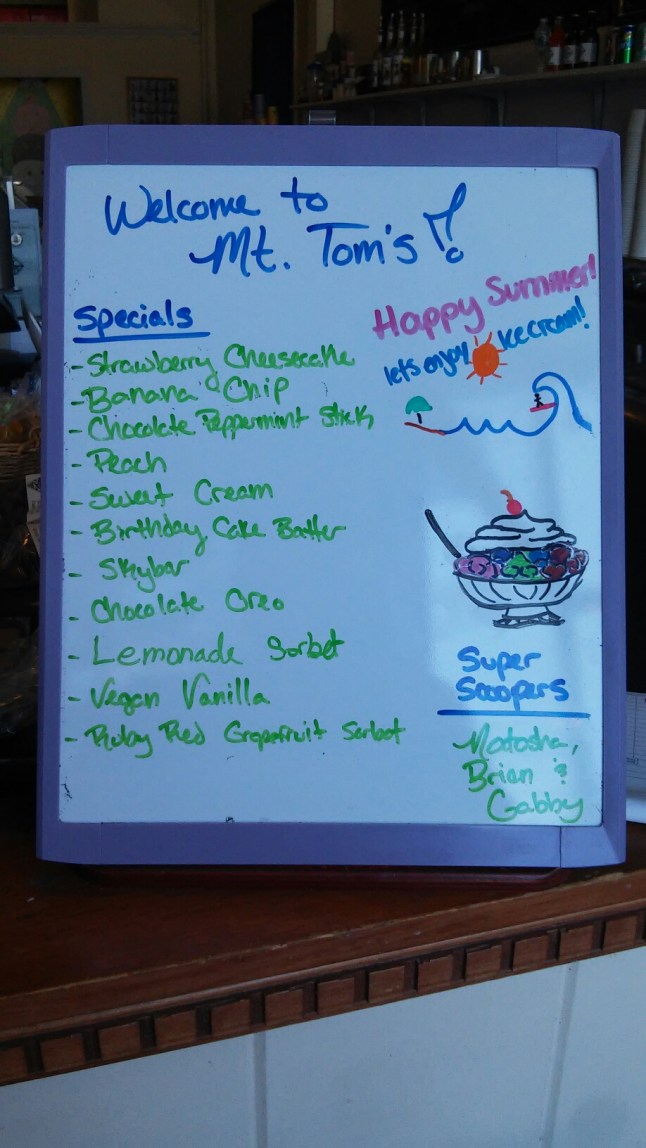 Welcome to
Mt. Tom's!
Happy Summer!
lets enjoy ice cream!
Specials
- Strawberry Cheesecake
- Banana Chip
- Chocolate Peppermint Stick
- Peach
- Sweet Cream
- Birthday Cake Batter
- Skybar
- Chocolate Oreo
- Lemonade Sorbet
- Vegan Vanilla
- Ruby Red Grapefruit Sorbet
Super
Scoopers
Natasha,
Brian &
Gabby